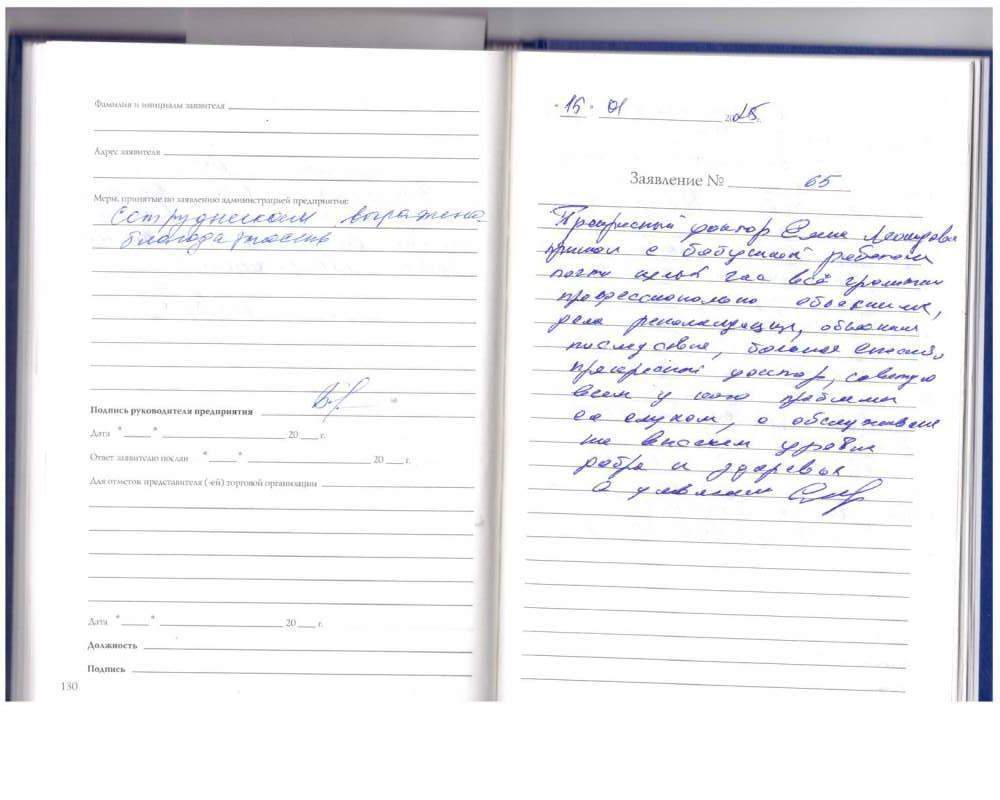 Фамилия и инициалы заявителя
Адрес заявителя
Меры, принятые по заявлению администрацией предприятия:
Сотрудникам выражена
благодарность
Подпись руководителя предприятия
Дата " " 20 г.
Ответ заявителю послан " " 20 г.
Для отметок представителя (-ей) торговой организации
Дата " " 20 г.
Должность
Подпись
130
"15" 01 2025 г.
Заявление № 65
Прекрасный доктор Леонидовна
с бабушкой работали
почти целый час всё грамотно
профессионально объяснили,
дала рекомендации, объяснила
последствия, большое спасибо,
прекрасный доктор, советую
всем у кого проблемы
со слухом, а обслуживание
на высоком уровне
добра и здоровья
С уважением